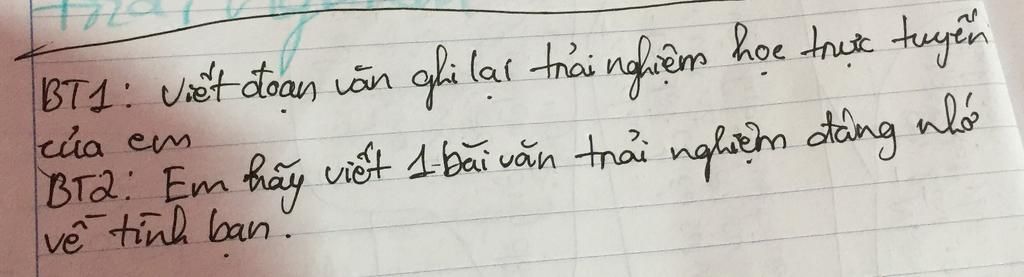 BT1: Viết đoạn văn ghi lại trải nghiệm học trực tuyến
của em
BT2: Em hãy viết 1 bài văn trải nghiệm đáng nhớ
về tình bạn.